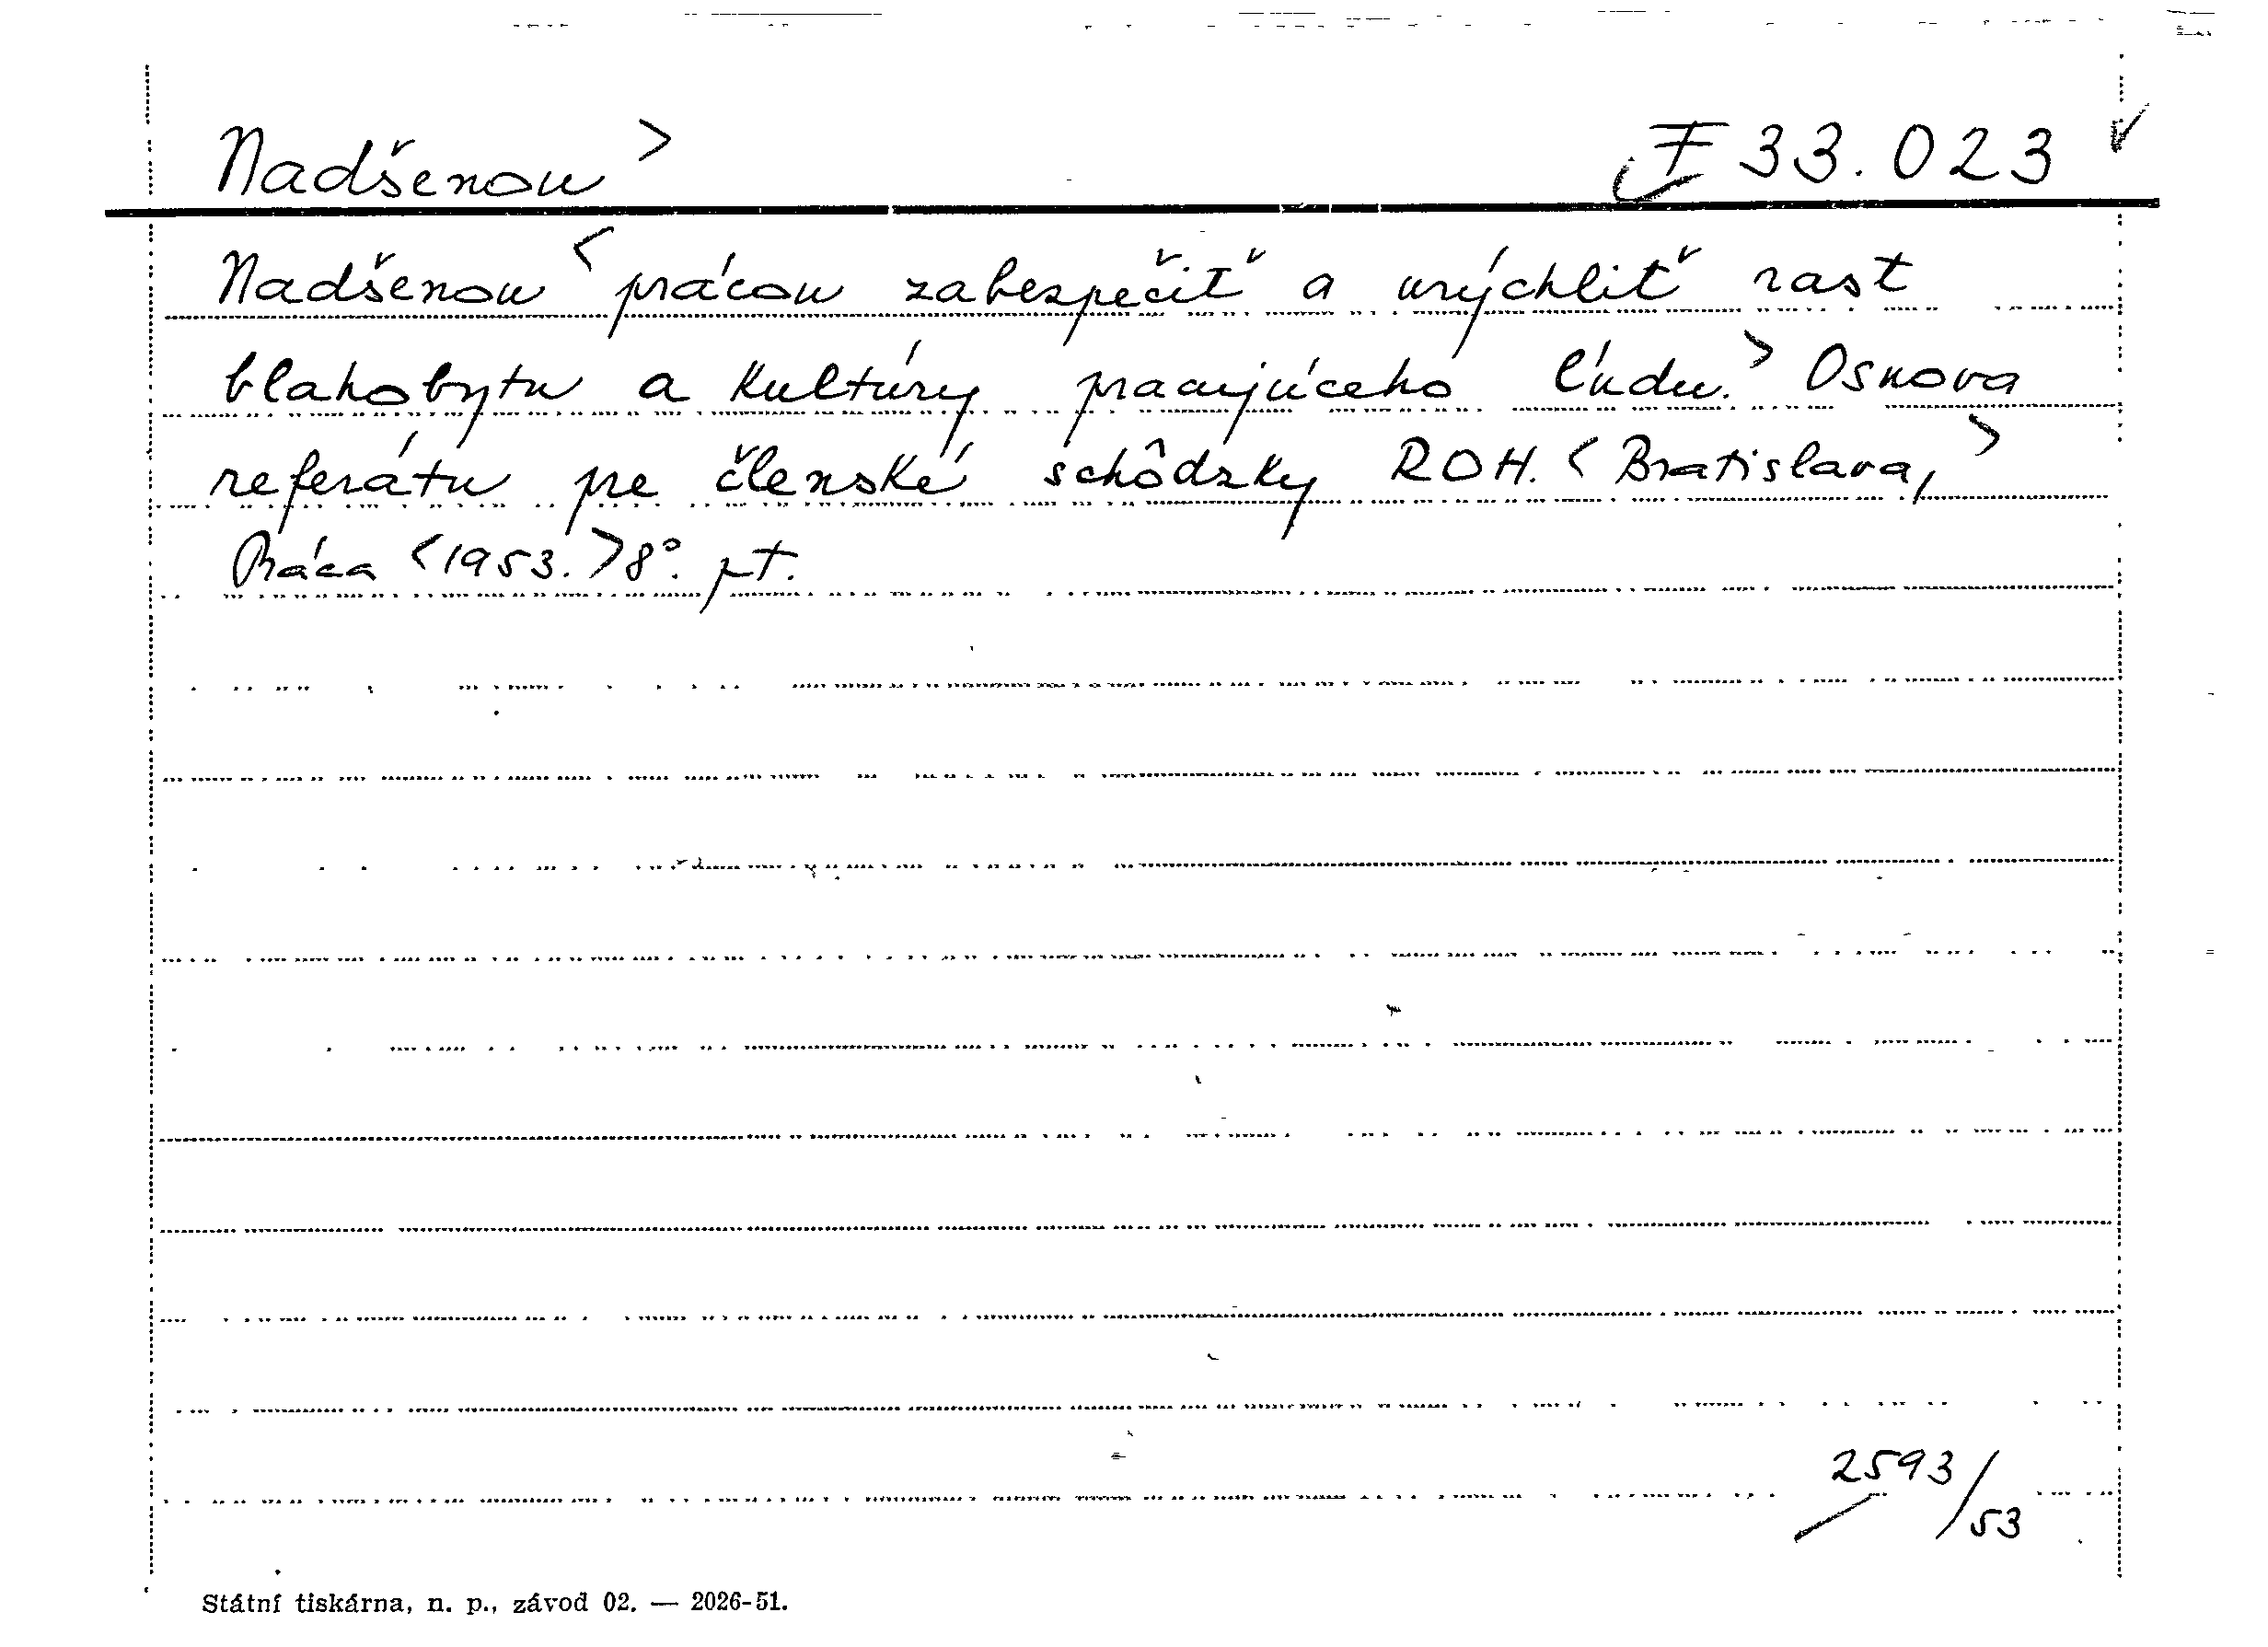 Nadšenou > F 33.023
Nadšenou < prácou zabezpečiť a urýchliť rast
blahobytu a kultúry pracujúceho ľudu. > Osnova
referátu pre členské schôdzky ROH. < Bratislava, >
Práca < 1953. > 8°. pt.
2593/53
Státní tiskárna, n. p., závod 02. — 2026-51.